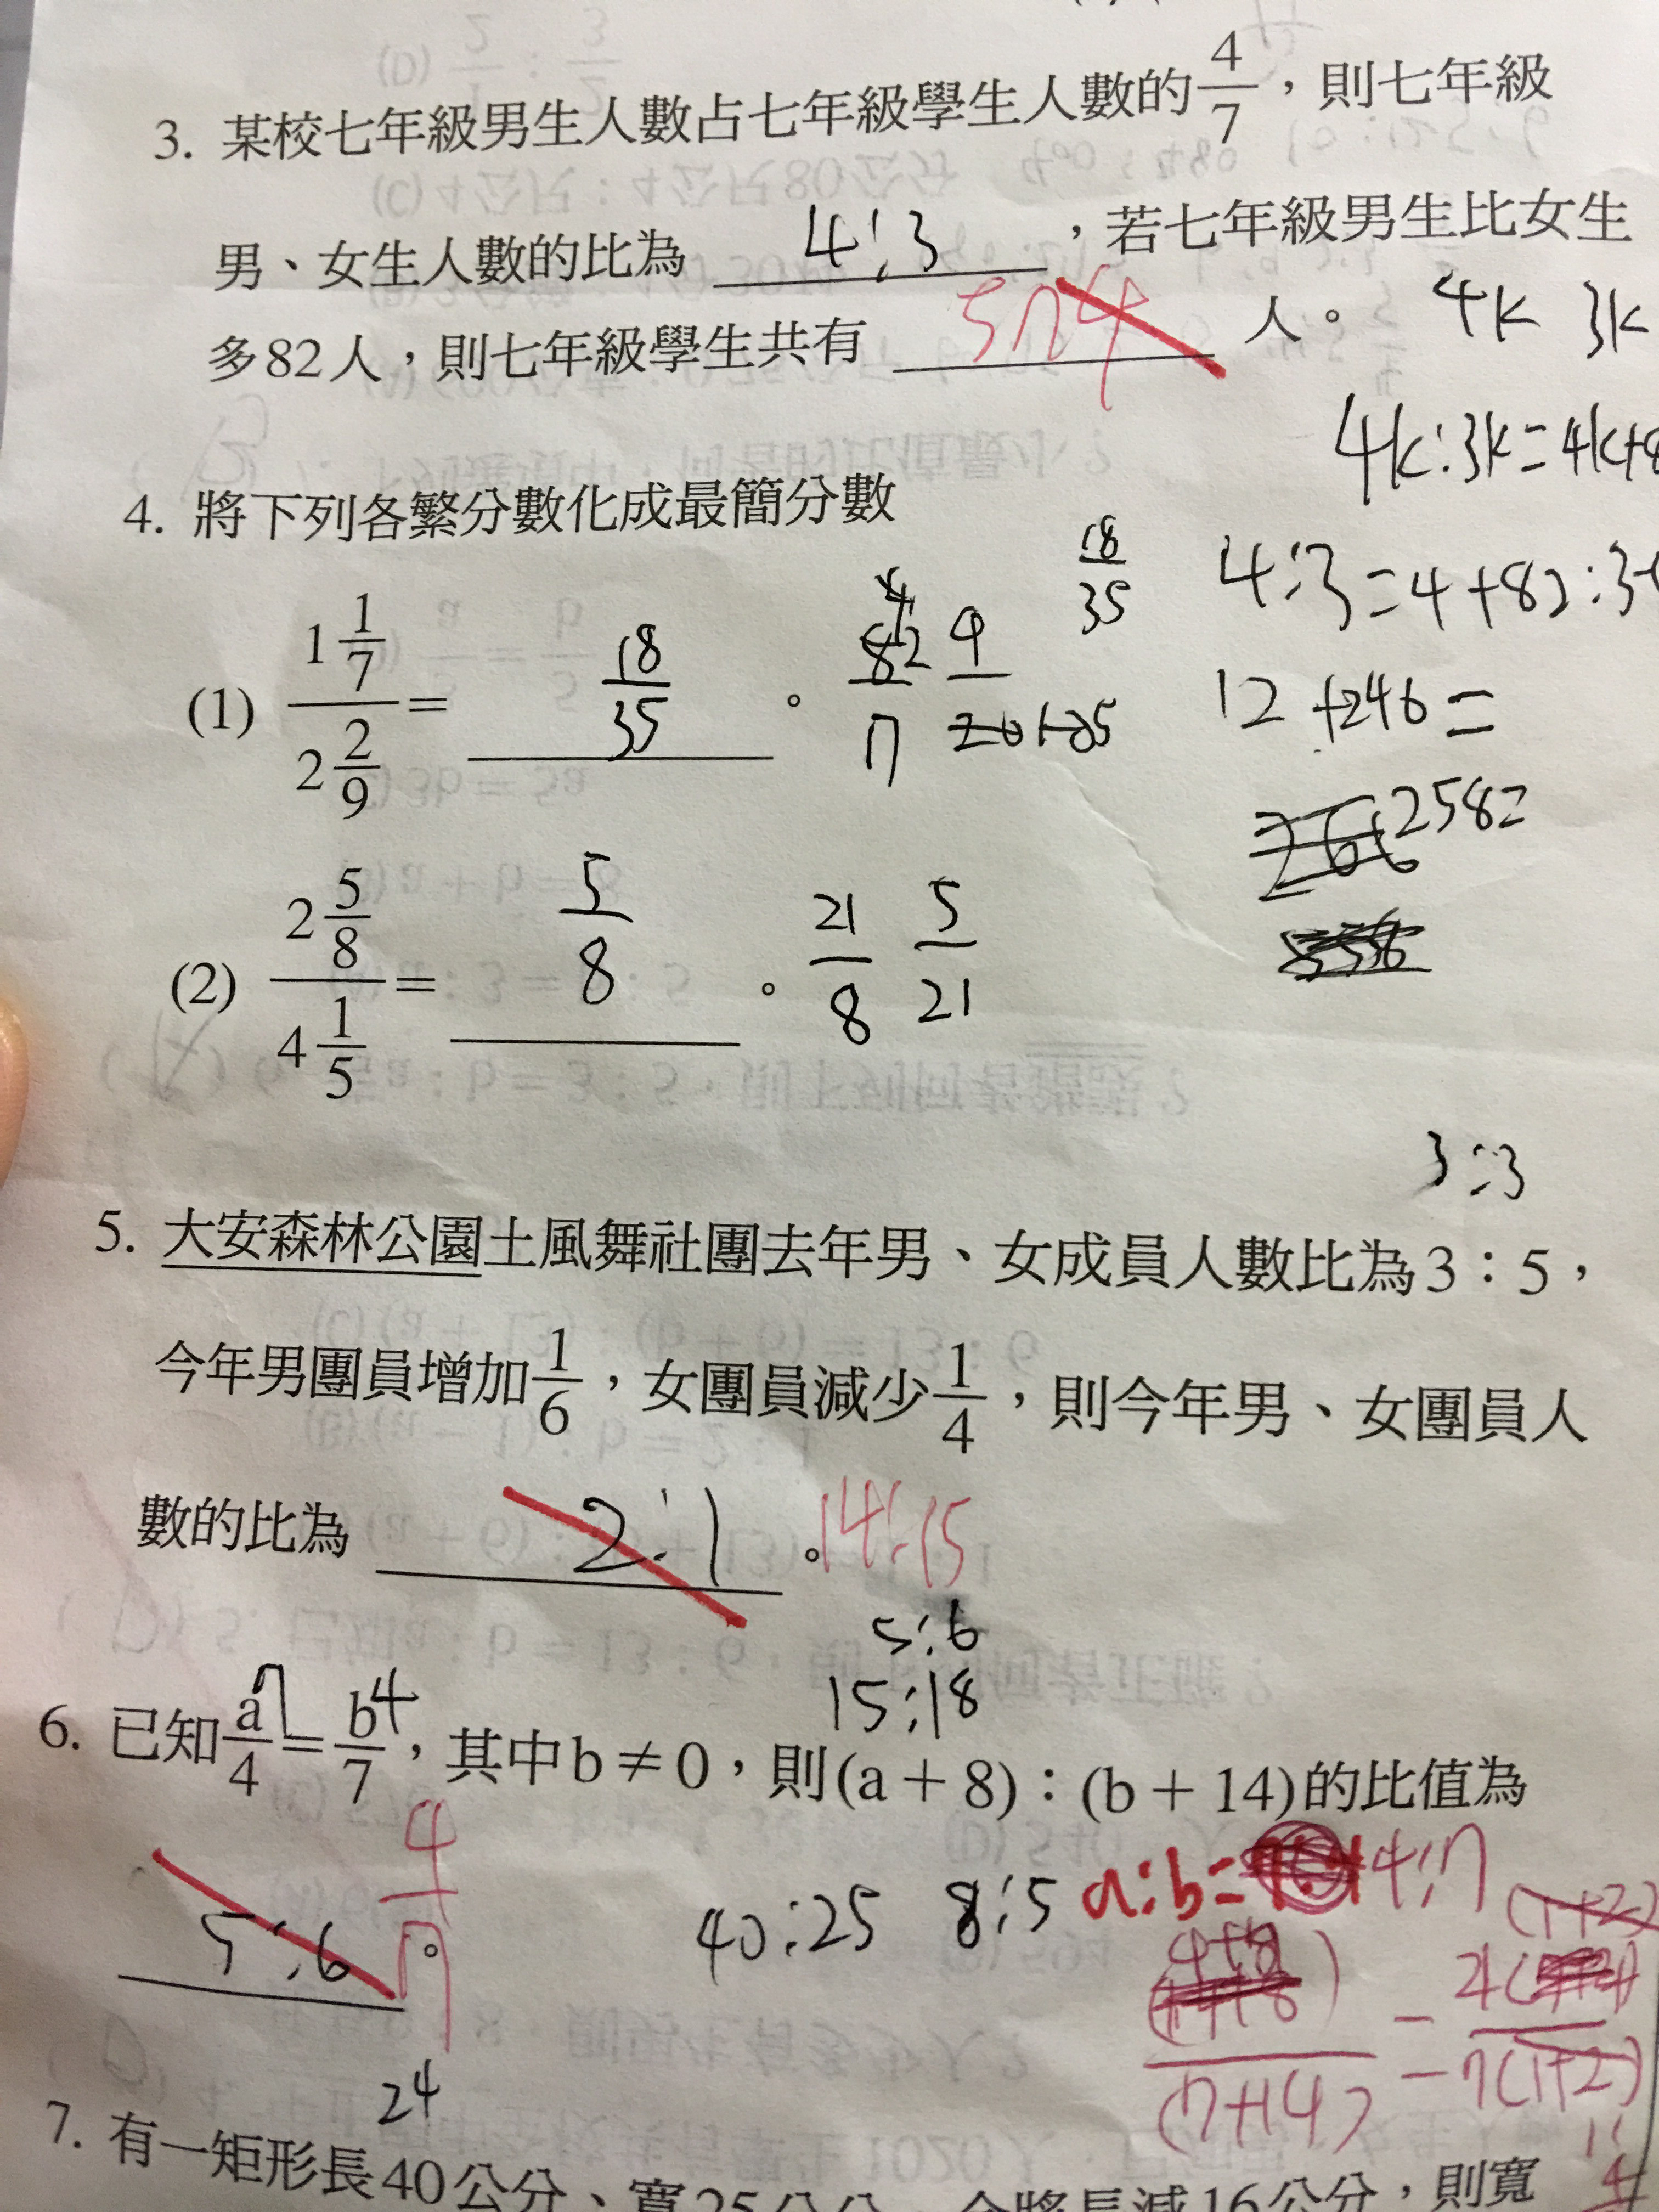 3. 某校七年級男生人數占七年級學生人數的 4/7，則七年級
男、女生人數的比為 4:3，若七年級男生比女生
多82人，則七年級學生共有 574 人。
4k 3k
4k:3k=4k+8
4. 將下列各繁分數化成最簡分數
18/35
4:3=4+82:3
(1) 1 1/7 / 2 2/9 = 18/35 。
12+246=
258=
(2) 2 5/8 / 4 1/5 = 5/8 。 21/8 5/21
3:3
5. 大安森林公園土風舞社團去年男、女成員人數比為3：5，
今年男團員增加 1/6，女團員減少 1/4，則今年男、女團員人
數的比為 2:1 。14:15
5:6
15:18
6. 已知 a/4 = b/7，其中b≠0，則(a＋8)：(b＋14)的比值為
7 4
5:6 。 4/7
40:25 8:5 a:b= 4:7
(7+14) 7(1+2)
24
7. 有一矩形長40公分、寬25公分，今將長減16公分，則寬